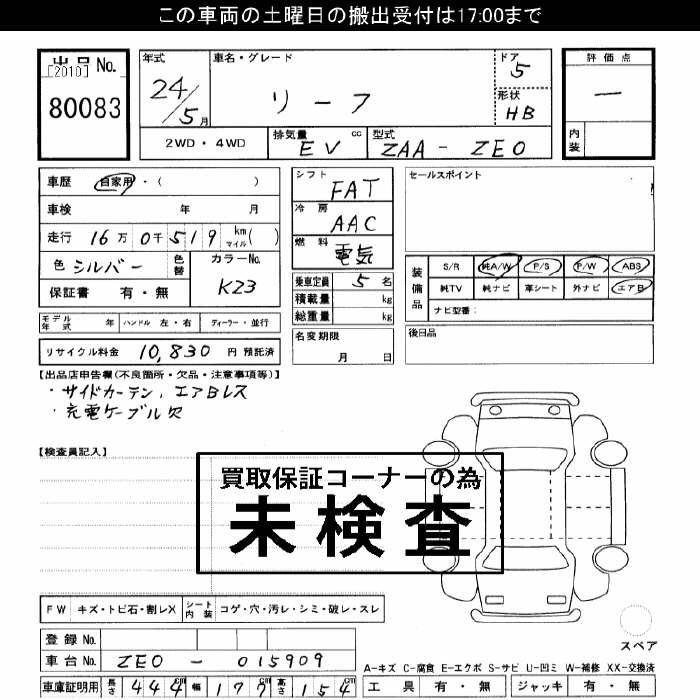 この車両の土曜日の搬出受付は17:00まで
出品 No.
[2010]
80083
年式
24/5月
車名・グレード
リーフ
ドア
5
形状
HB
評価点
ー
内装
2WD・4WD
排気量 cc
EV
型式
ZAA-ZE0
車歴 自家用・( )
車検 年 月
走行 16万0千519 km マイル( )
色 シルバー 色替
カラーNo.
K23
保証書 有・無
モデル年式 年 ハンドル 左・右 ディーラー・並行
リサイクル料金 10,830 円 預託済
シフト
FAT
冷房
AAC
燃料
電気
乗車定員 5 名
積載量 kg
総重量 kg
名変期限
月 日
セールスポイント
装備品
S/R 純A/W P/S P/W ABS
純TV 純ナビ 革シート 外ナビ エアB
ナビ型番:
後日品
【出品店申告欄(不良箇所・欠品・注意事項等)】
・サイドカーテン、エアBレス
・充電ケーブル欠
【検査員記入】
買取保証コーナーの為
未検査
FW キズ・トビ石・割レX シート内装 コゲ・穴・汚レ・シミ・破レ・スレ
登録 No.
車台 No. ZE0 - 015909
車庫証明用 長さ 444cm 幅 177cm 高さ 154cm
スペア
A-キズ C-腐食 E-エクボ S-サビ U-凹ミ W-補修 XX-交換済
工具 有・無 ジャッキ 有・無